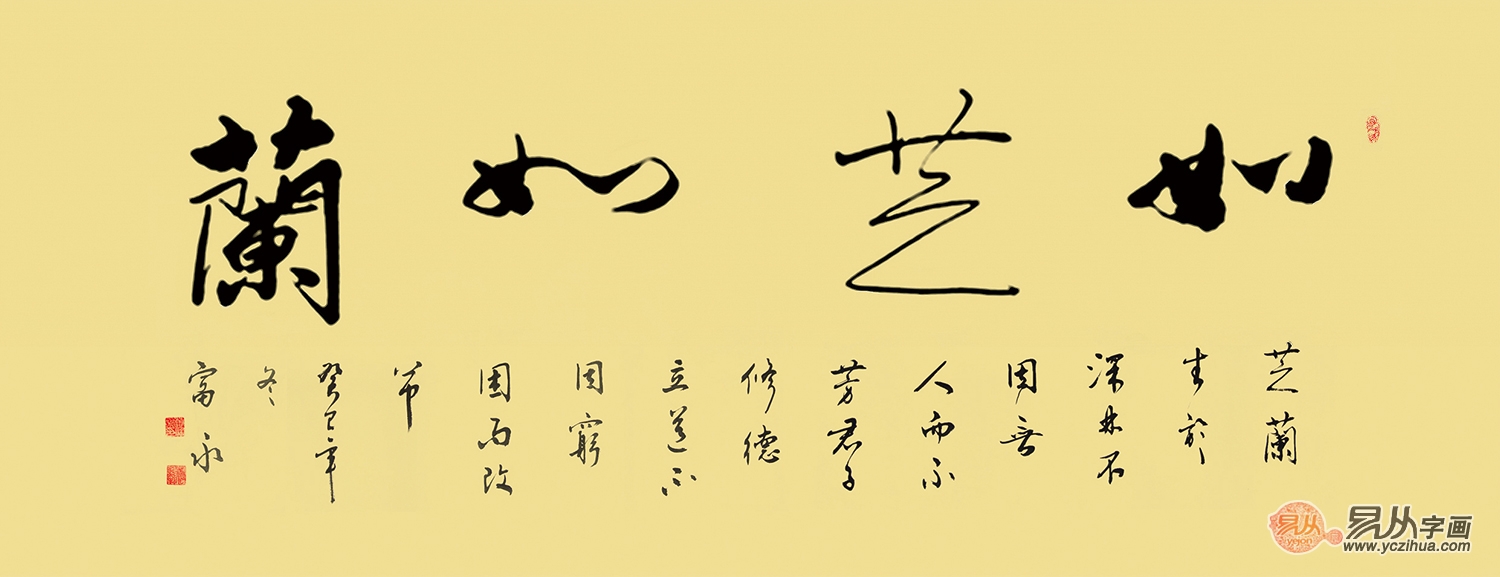 如芝如蘭
芝蘭
生於
深林不
因無
人而不
芳君子
修德
立道不
因窮
困而改
節
癸巳年
冬
富永
易从
yicon
易从字画
www.yczihua.com